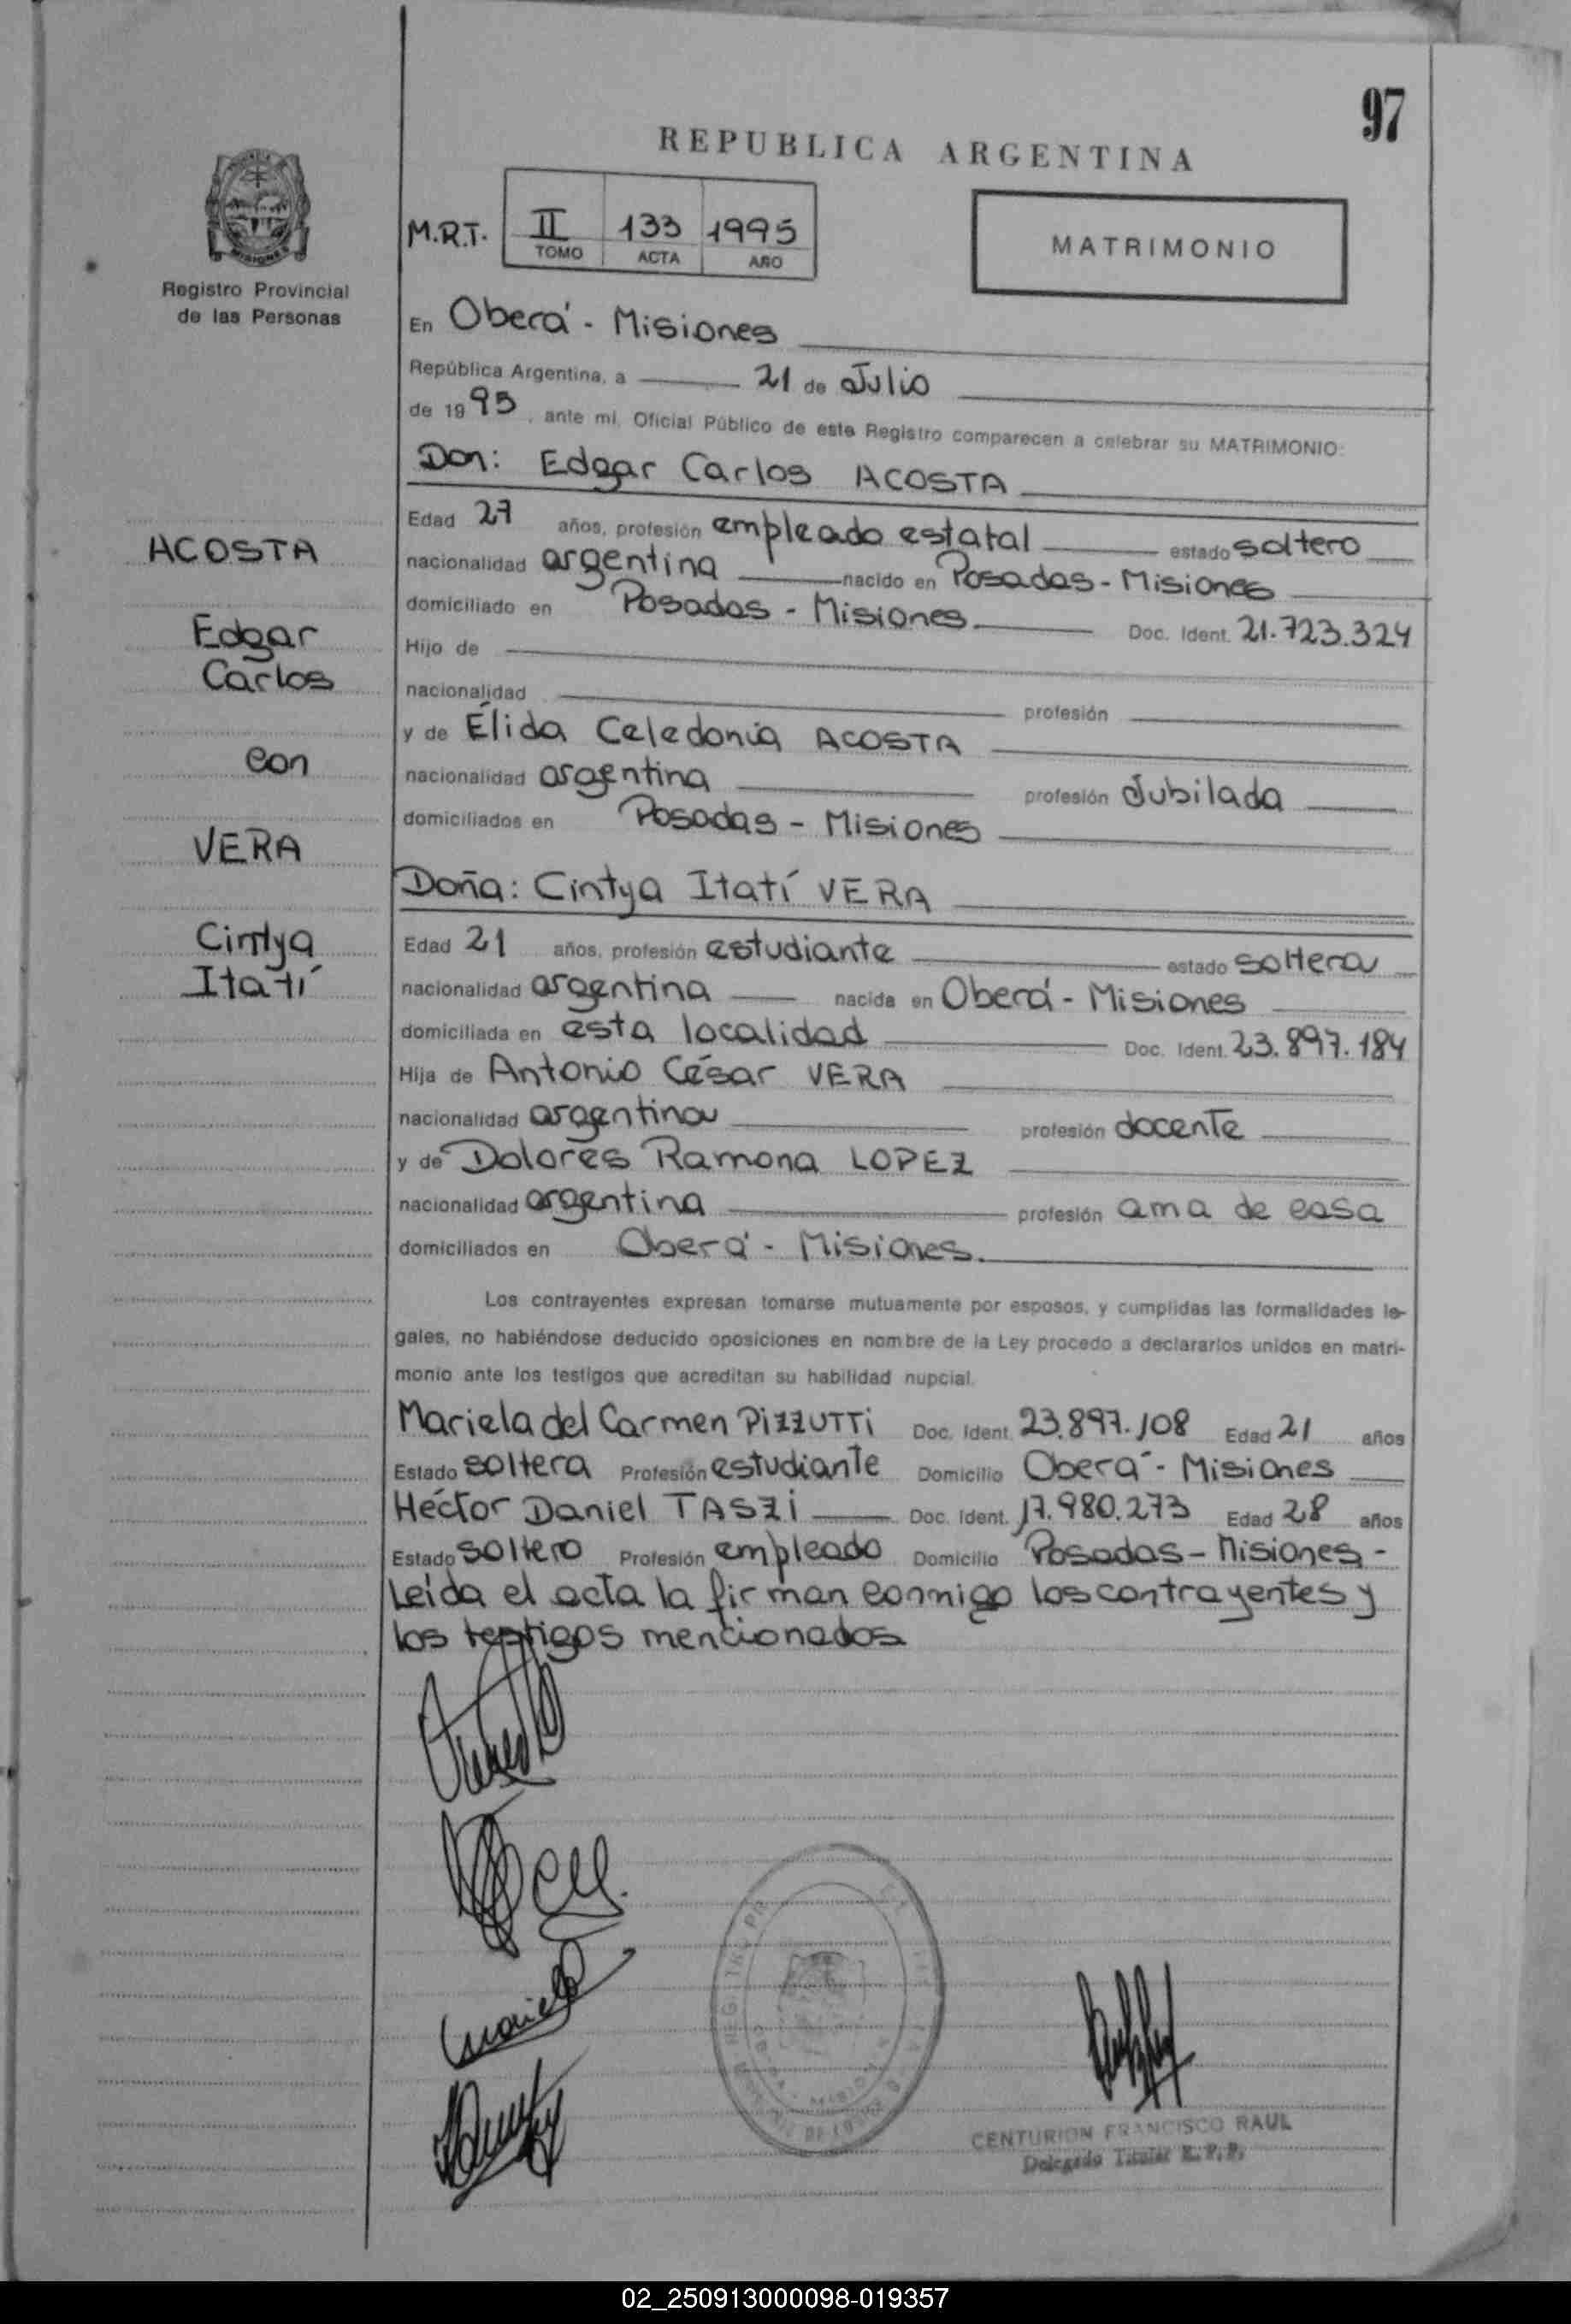 97
REPUBLICA ARGENTINA
M.R.T.
II 133 1995
TOMO ACTA AÑO
MATRIMONIO
MISIONES
Registro Provincial
de las Personas
En Oberá - Misiones
República Argentina, a 21 de Julio
de 1995, ante mi, Oficial Público de este Registro comparecen a celebrar su MATRIMONIO:
Don: Edgar Carlos ACOSTA
Edad 27 años, profesión empleado estatal estado soltero
nacionalidad argentina nacido en Posadas - Misiones
domiciliado en Posadas - Misiones Doc. Ident. 21.723.324
Hijo de
nacionalidad profesión
y de Élida Celedonia ACOSTA
nacionalidad argentina profesión Jubilada
domiciliados en Posadas - Misiones
Doña: Cintya Itatí VERA
Edad 21 años, profesión estudiante estado soltera
nacionalidad argentina nacida en Oberá - Misiones
domiciliada en esta localidad Doc. Ident. 23.897.184
Hija de Antonio César VERA
nacionalidad argentina profesión docente
y de Dolores Ramona LOPEZ
nacionalidad argentina profesión ama de casa
domiciliados en Oberá - Misiones.
ACOSTA
Edgar
Carlos
con
VERA
Cintya
Itatí
Los contrayentes expresan tomarse mutuamente por esposos, y cumplidas las formalidades le-
gales, no habiéndose deducido oposiciones en nombre de la Ley procedo a declararlos unidos en matri-
monio ante los testigos que acreditan su habilidad nupcial.
Mariela del Carmen PIZZUTTI Doc. Ident. 23.897.108 Edad 21 años
Estado soltera Profesión estudiante Domicilio Oberá - Misiones
Héctor Daniel TASZI Doc. Ident. 17.980.273 Edad 28 años
Estado soltero Profesión empleado Domicilio Posadas - Misiones -
Leida el acta la firman conmigo los contrayentes y
los testigos mencionados
Mariela
CENTURION FRANCISCO RAUL
Delegado Titular R.P.P.
02_250913000098-019357